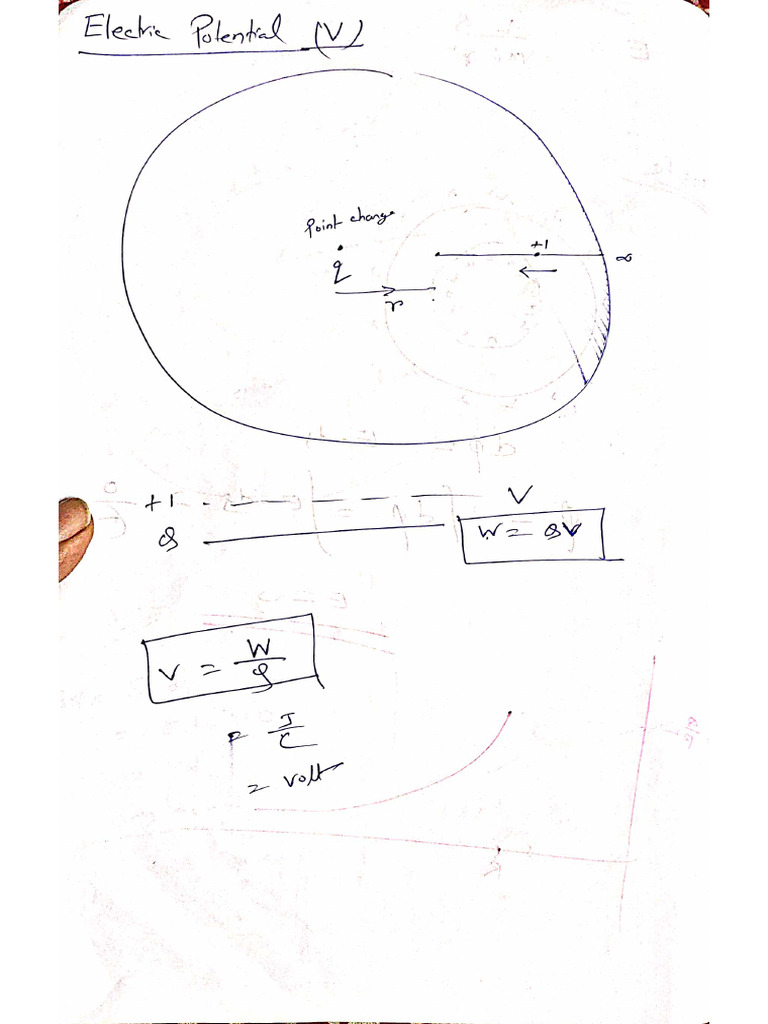 Electric Potential (V)
Point change
q
+1
∞
r
+1 - - - - - V
Q ——— W = QV
V = W/Q
= J/C
= volt